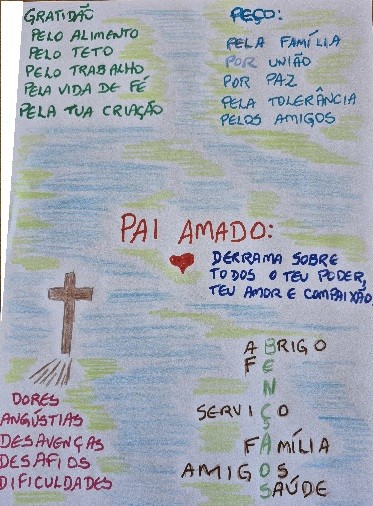 GRATIDÃO
PELO ALIMENTO
PELO TETO
PELO TRABALHO
PELA VIDA DE FÉ
PELA TUA CRIAÇÃO
PEÇO:
PELA FAMÍLIA
POR UNIÃO
POR PAZ
PELA TOLERÂNCIA
PELOS AMIGOS
PAI AMADO:
DERRAMA SOBRE
TODOS O TEU PODER,
TEU AMOR E COMPAIXÃO
DORES
ANGÚSTIAS
DESAVENÇAS
DESAFIOS
DIFICULDADES
ABRIGO
FE
N
SERVIÇO
FAMÍLIA
AMIGOS
SAÚDE